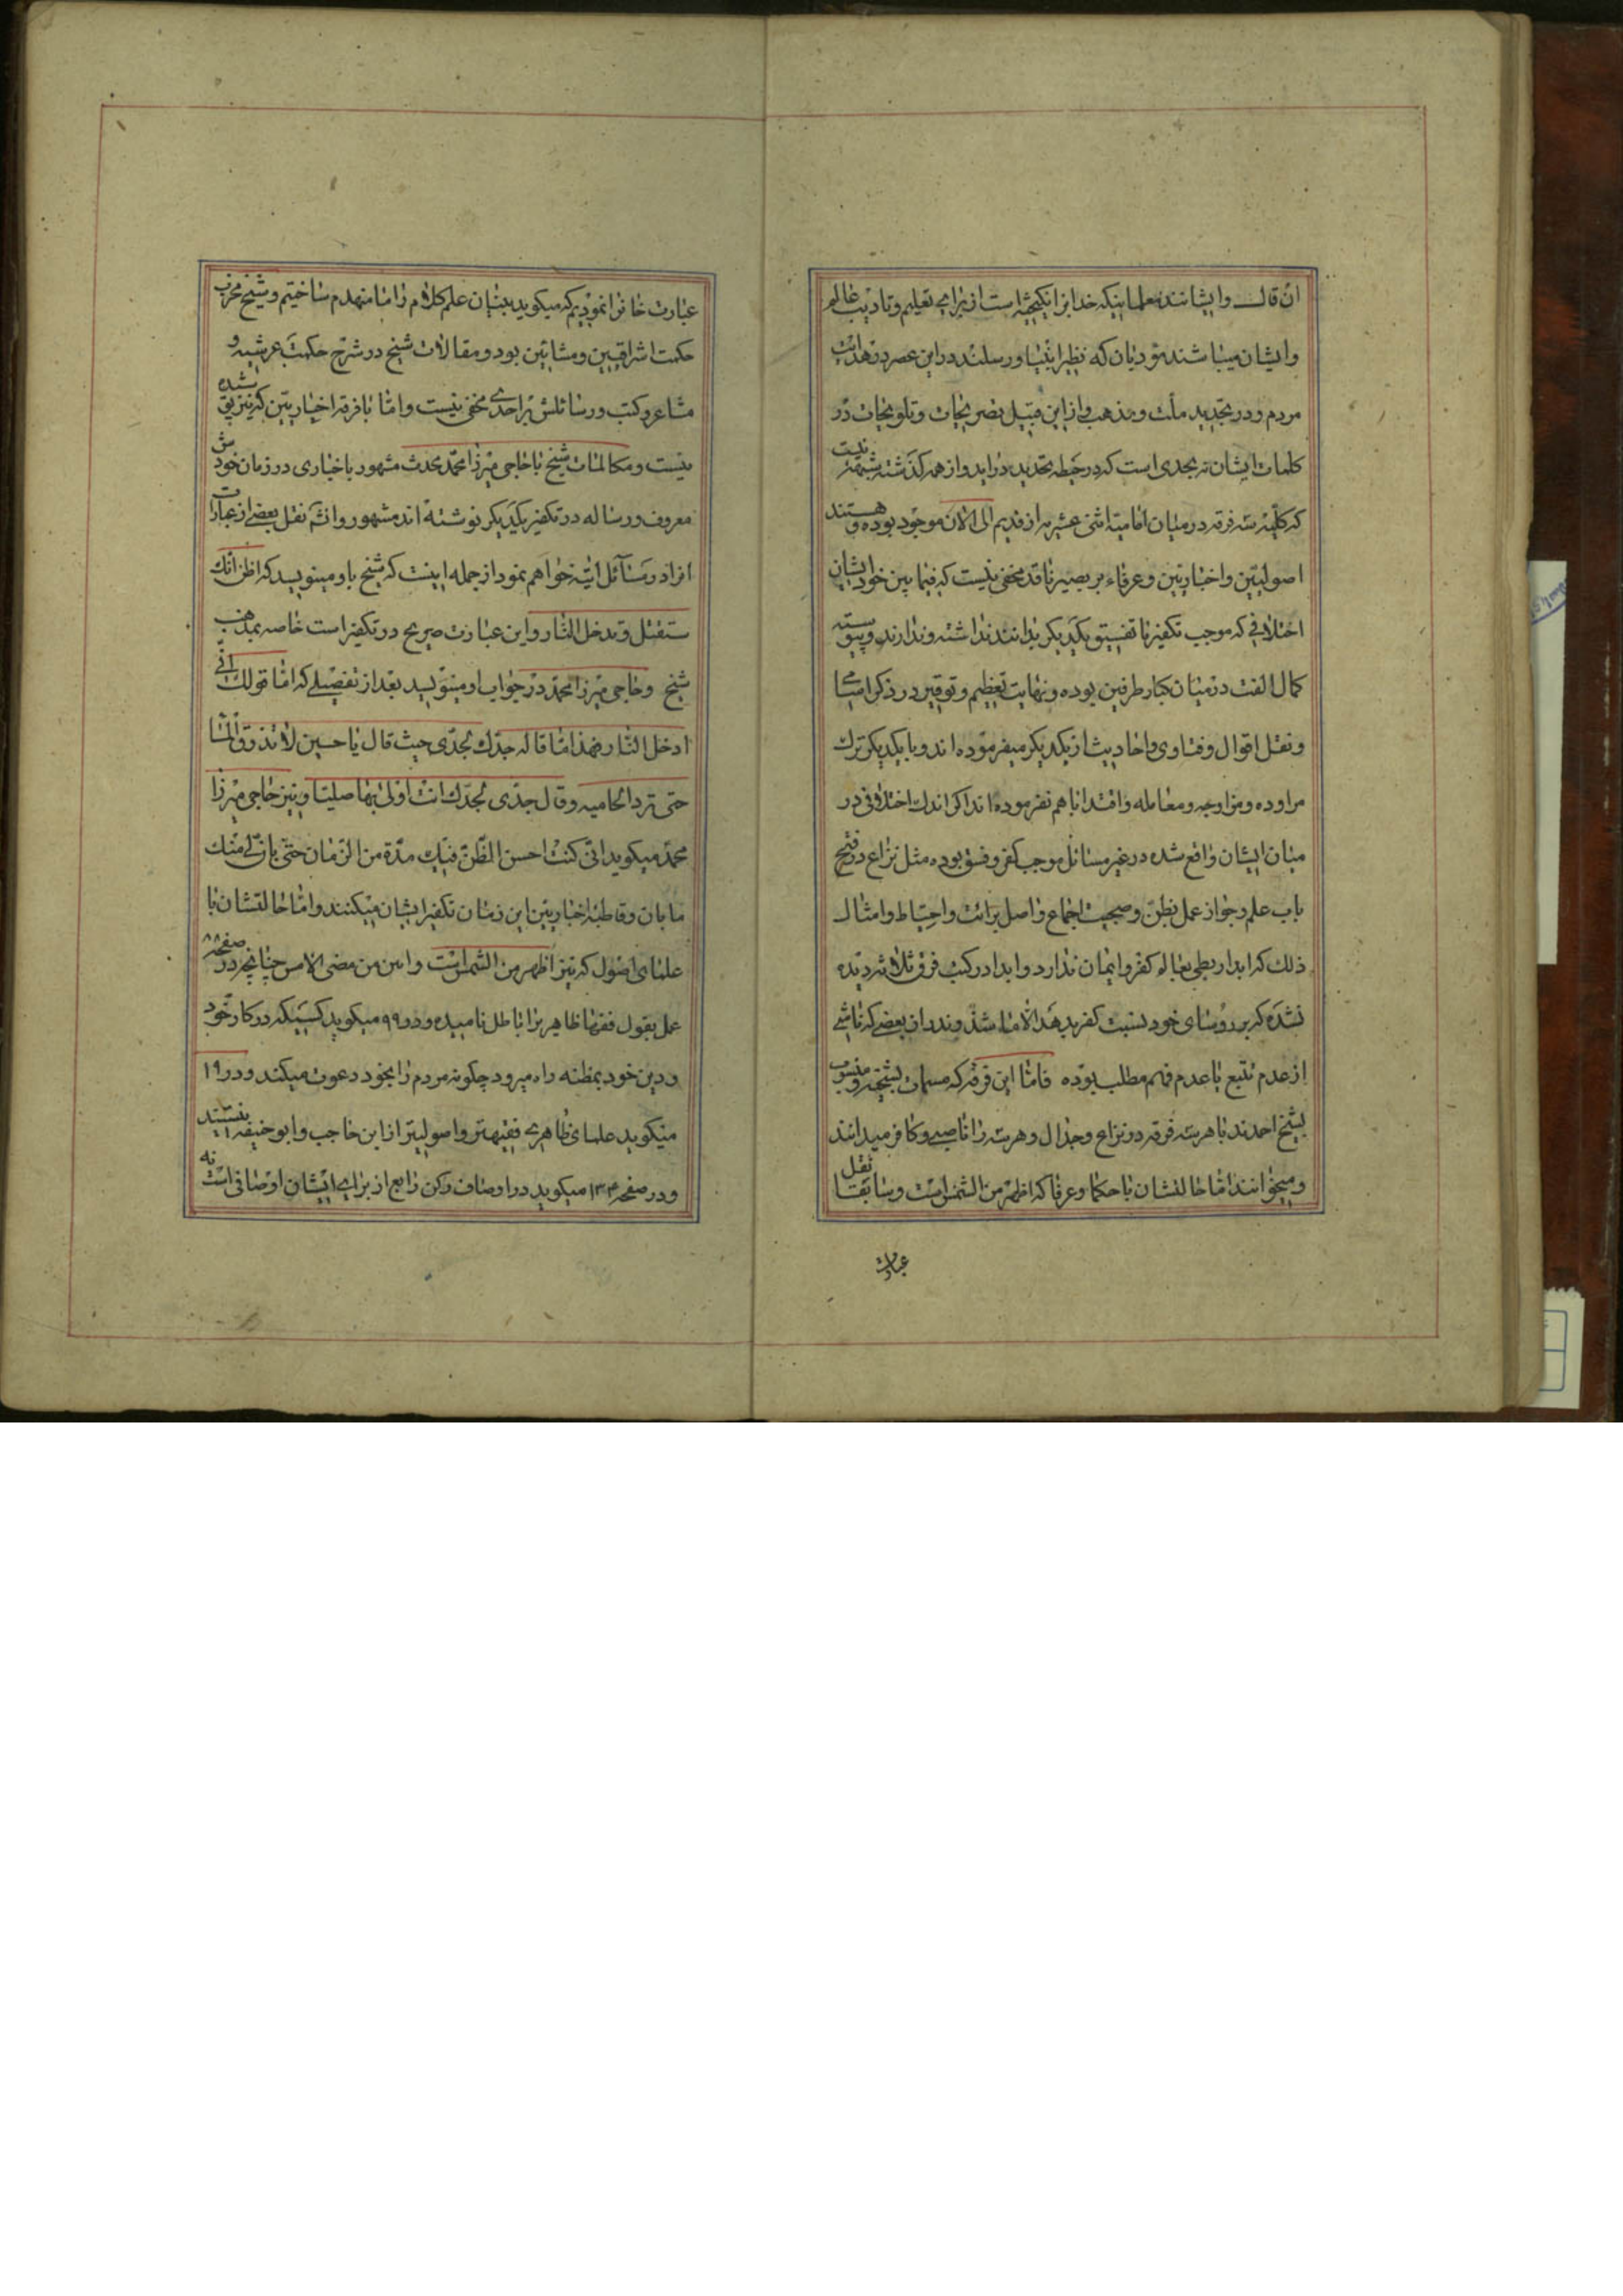 ان قال وایشانند معلماینکه خدا برانگیخته است از برای تعلیم وتادیب عالم
وایشان میباشند مؤدیان که نظیر انبیا ورسلند در این عصر در هدایت
مردم ودر تجدید ملت ومذهب واز این قبیل تصریحات وتلویحات در
کلمات ایشان نه بحدی است که در حیطه تحدید دراید واز همه گذشته شبهه نیست
که کلیه سه فرقه در میان امامیه اثنی عشریه از قدیم الی الان موجود بوده وهستند
اصولیین واخباریین وعرفاء بر بصیر ناقد مخفی نیست که فیما بین خود ایشان
اختلافی که موجب تکفیر یا تفسیق یکدیگر بدانند نداشته وندارند وپیوسته
کمال الفت در میان کبار طرفین بوده ونهایت تعظیم وتوقیر در ذکر اسامی
ونقل اقوال وفتاوی واحادیث از یکدیگر میفرموده اند وبا یکدیگر ترک
مراوده ومزاوجه ومعامله واقتدا باهم نفرموده اند اگر اندک اختلافی در
میان ایشان واقع شده در غیر مسائل موجب کفر وفسق بوده مثل نزاع در فتح
باب علم وجواز عمل بظن وحجیت اجماع واصل برائت واحتیاط وامثال
ذلک که ابدا ربطی بعالم کفر وایمان ندارد وابدا در کتب فرق ثلاثه دیده
نشده که بر روسای خود نسبت کفر بدهند الا ما شذ وندر از بعضی که ناشی
از عدم تتبع یا عدم فهم مطلب بوده فاما این فرقه که مسمات بشیخیه ومنسوب
بشیخ احمدند با هر سه فرقه در نزاع وجدال وهر سه را ناصبی وکافر میدانند
ومیخوانند اما حالتشان با حکما وعرفا که اظهر من الشمس است وسابقا نقل
عبارت
عبارت خانرا نمودیم که میگوید بنیان علم کلام را ما منهدم ساختیم وشیخ مخرب
حکمت اشراقیین ومشائین بود ومقالات شیخ در شرح حکمت عرشیه و
مشاعر وکتب ورسائلش بر احدی مخفی نیست واما با فرقه اخباریین که نیز پوشیده
نیست ومکالمات شیخ با حاجی میرزا محمد محدث مشهور باخباری در زمان خودش
معروف ورساله در تکفیر یکدیگر نوشته اند مشهور وانشم نقل بعضی از عبارات
انرا در مسائل اتیه خواهم نمود از جمله اینست که شیخ باو مینویسد که اظن انک
ستقتل وتدخل النار واین عبارت صریح در تکفیر است خاصه بمذهب
شیخ وحاجی میرزا محمد در جواب او مینویسد بعد از تفصیلی که اما قولک انی
ادخل النار فهذا ما قاله جدک لجدی حیث قال یا حسین لا تذوق الماء
حتی ترد الحامیه وقال جدی لجدک انت اولی بها صلیا ونیز حاجی میرزا
محمد میگوید انی کنت احسن الظن فیک مدة من الزمان حتی بان لی منک
ما بان وقاطبه اخباریین این زمان تکفیر ایشان میکنند واما حالتشان با
علمای اصول که نیز اظهر من الشمس است وابین من مضی الامس چنانچه در صفحه ۸۸
عمل بقول فقها ظاهر برا باطل نامیده ودر ۹۹ میگوید کسیکه در کار خود
ودین خود بمظنه راه میرود چگونه مردم را بخود دعوت میکند ودر ۱۹
میگوید علمای ظاهری فقیهتر واصولیتر از ابن حاجب وابو حنیفه نیستند
ودر صفحه ۱۳۴ میگوید در اوصاف رکن رابع از برای ایشان اوصافی است که